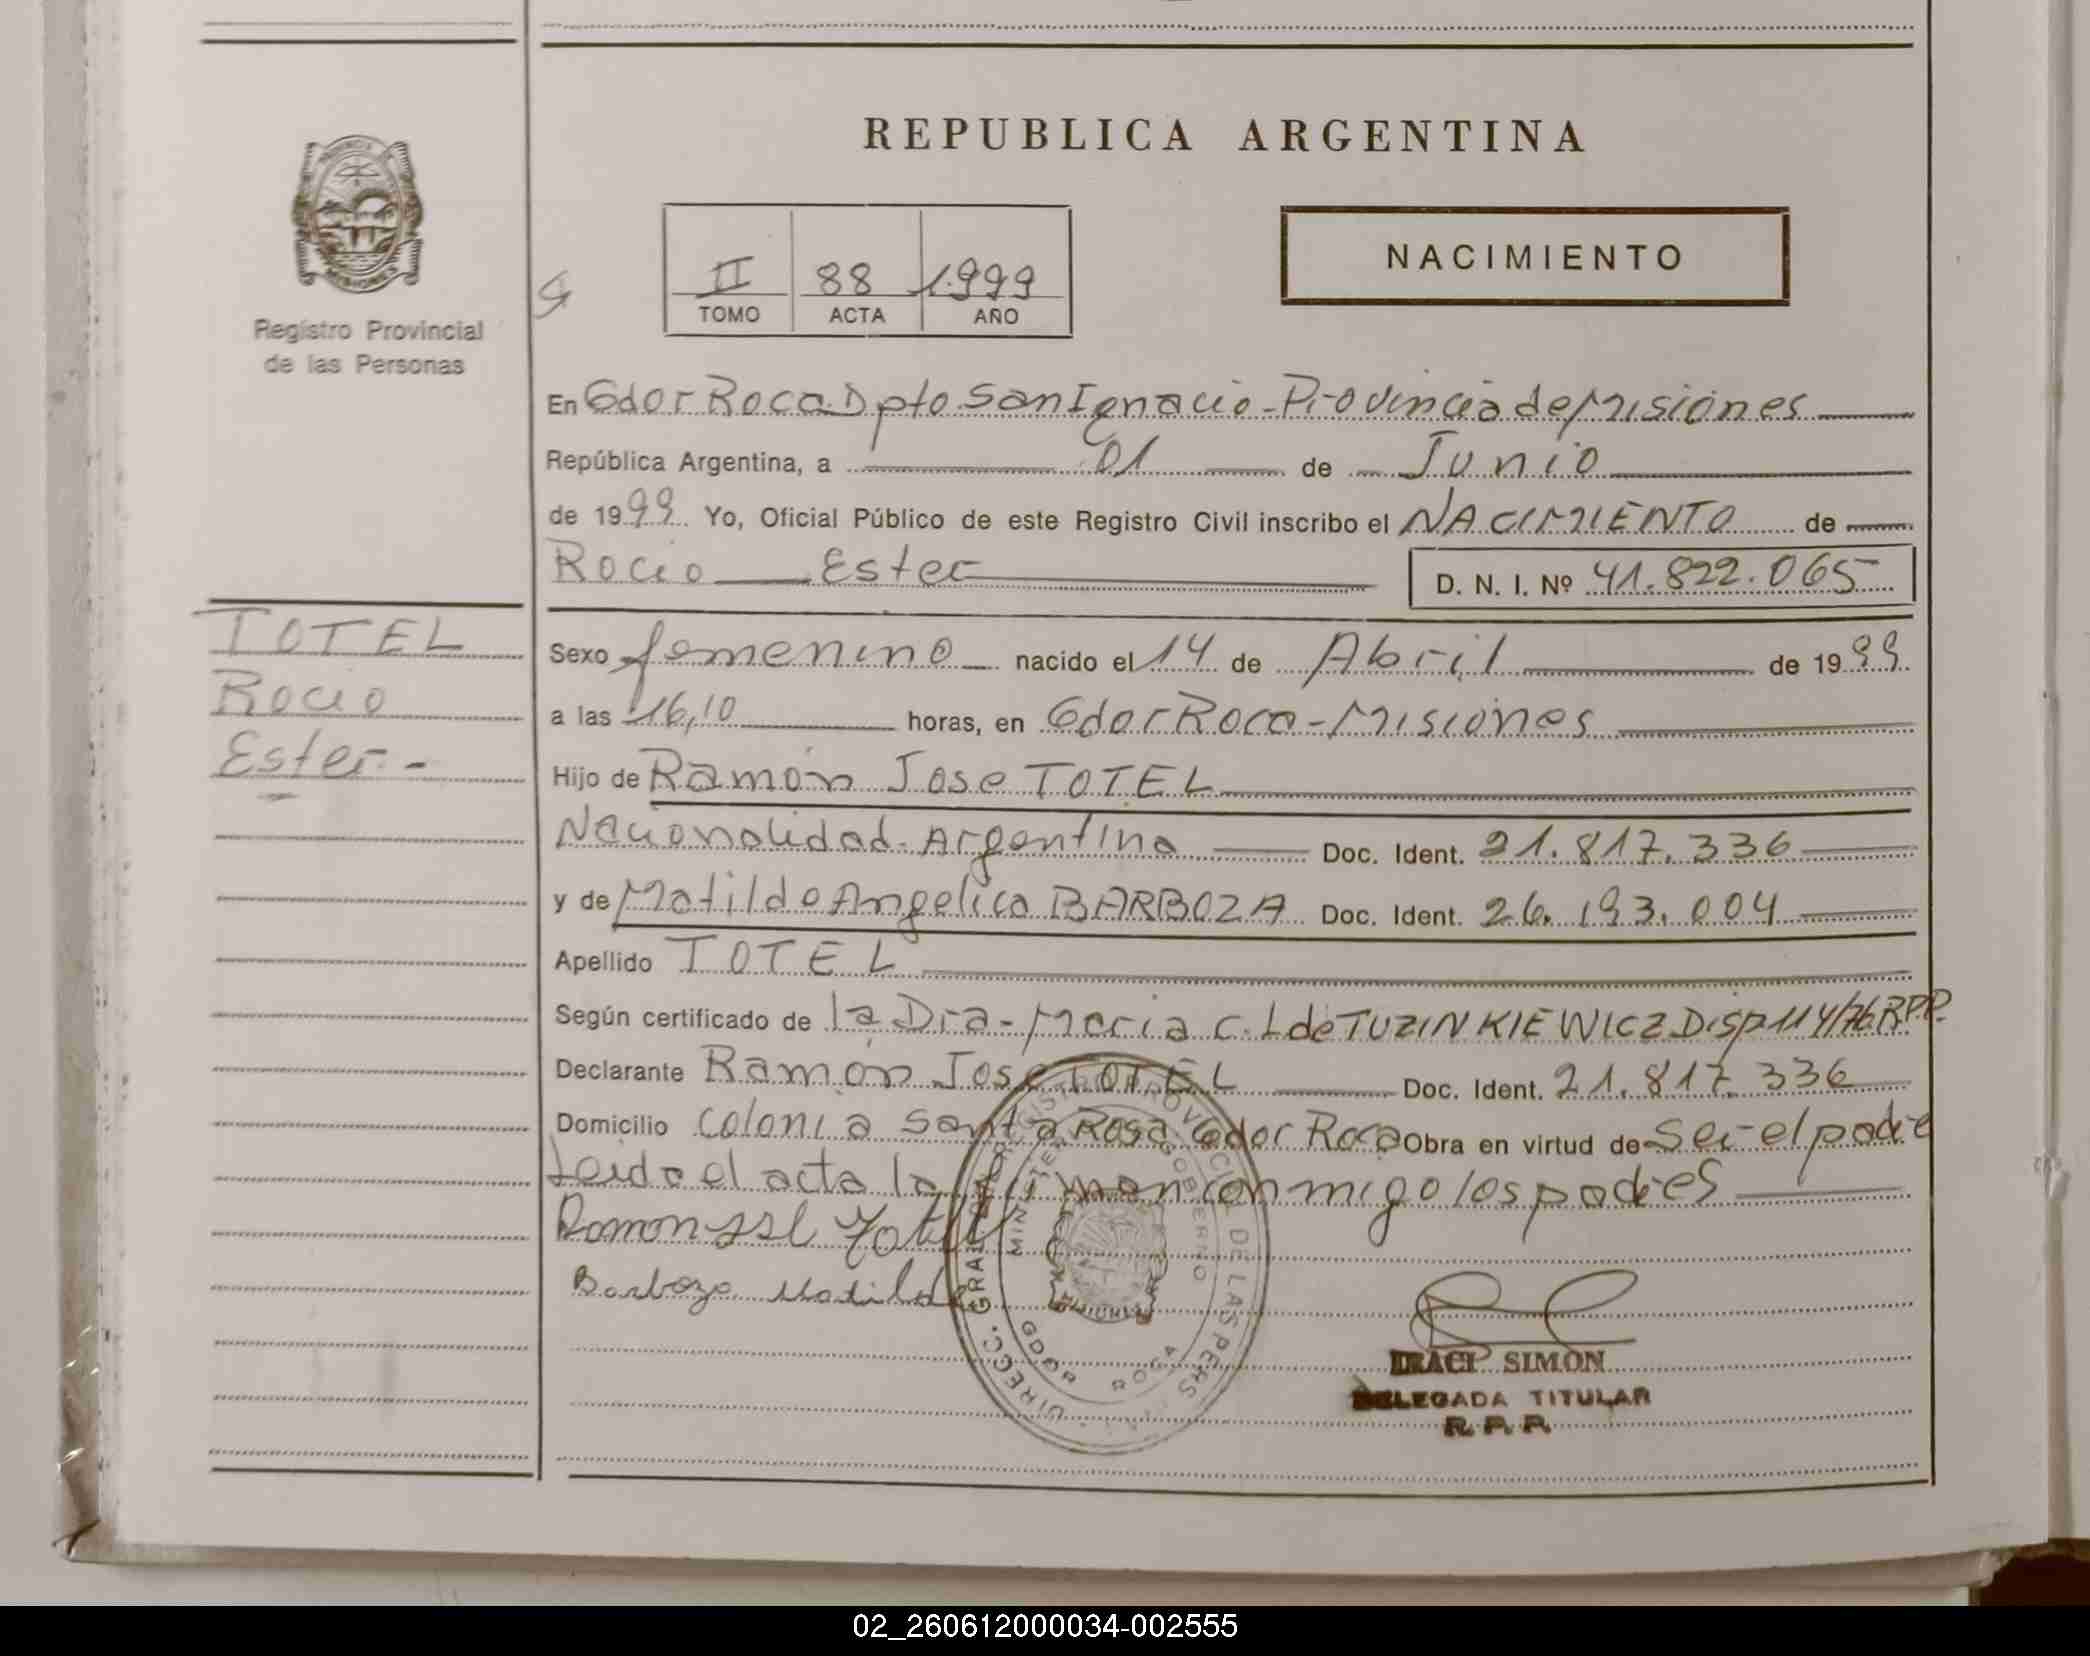 REPUBLICA ARGENTINA
NACIMIENTO
II 88 1.999
TOMO ACTA AÑO
Registro Provincial
de las Personas
En Gdor Roca Dpto San Ignacio - Provincia de Misiones
República Argentina, a 01 de Junio
de 1999. Yo, Oficial Público de este Registro Civil inscribo el NACIMIENTO de
Rocio Ester D. N. I. Nº 41.822.065
TOTEL
Rocio
Ester.-
Sexo femenino nacido el 14 de Abril de 1999.
a las 16,10 horas, en Gdor Roca - Misiones
Hijo de Ramón Jose TOTEL
Nacionalidad - Argentina Doc. Ident. 21.817.336
y de Matilde Angelica BARBOZA Doc. Ident. 26.193.004
Apellido TOTEL
Según certificado de la Dra - Maria C. L de TUZINKIEWICZ Disp 114/76 R.P.P.
Declarante Ramón Jose TOTEL Doc. Ident. 21.817.336
Domicilio Colonia Santa Rosa. Gdor Roca Obra en virtud de Ser el padre
Leida el acta la firman conmigo los padres
Ramon Totel
Barboza Matilde
DIRECC. GRAL. DEL REGISTRO PROVINCIAL DE LAS PERS
MINISTERIO GOBIERNO
MISIONES
GDOR ROCA
IRACI SIMON
DELEGADA TITULAR
R. P. P.
02_260612000034-002555